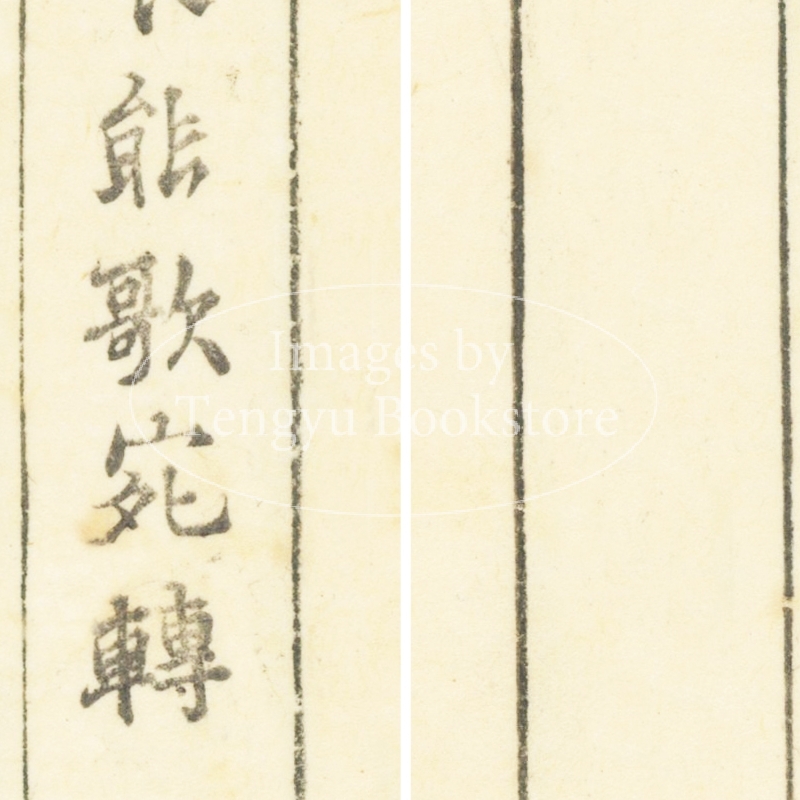 能歌宛轉
Images by
Tengyu Bookstore